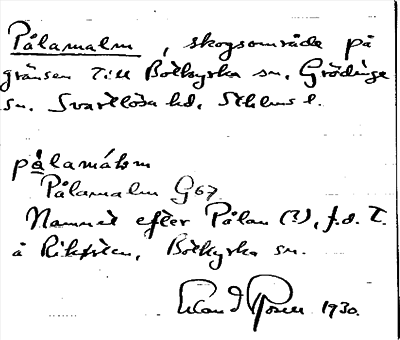 Pålamalm, skogsområde på
gränsen till Botkyrka sn, Grödinge
sn. Svartlösa hd. Sthlms l.
pålamálm
Pålamalm G67.
Namnet efter Pålan (?), f.d. T.
å Riksten, Botkyrka sn.
Erland Rosell 1930.